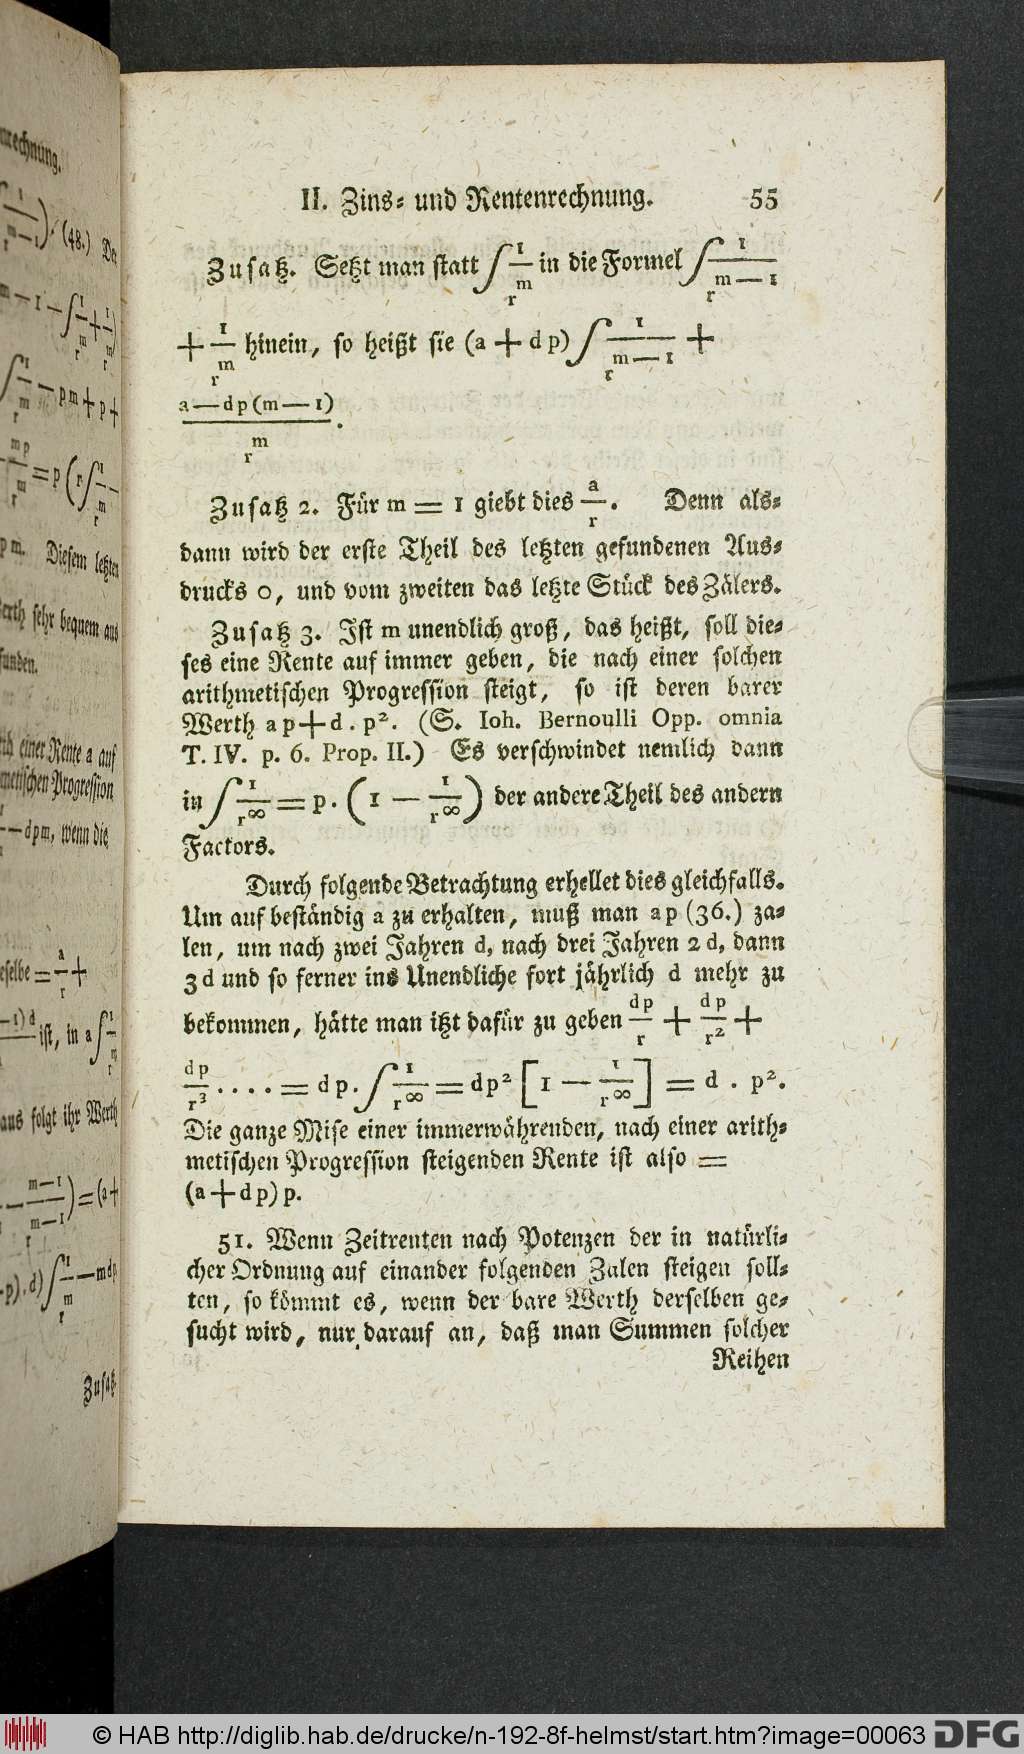 II. Zins- und Rentenrechnung. 55
Zusatz. Setzt man statt ∫ 1/r^m in die Formel ∫ 1/r^(m—1)
+ 1/r^m hinein, so heißt sie (a + dp) ∫ 1/r^(m—1) +
(a—dp(m—1))/r^m.
Zusatz 2. Für m = 1 giebt dies a/r. Denn als-
dann wird der erste Theil des letzten gefundenen Aus-
drucks 0, und vom zweiten das letzte Stück des Zälers.
Zusatz 3. Ist m unendlich groß, das heißt, soll die-
ses eine Rente auf immer geben, die nach einer solchen
arithmetischen Progression steigt, so ist deren barer
Werth ap+d.p². (S. Ioh. Bernoulli Opp. omnia
T. IV. p. 6. Prop. II.) Es verschwindet nemlich dann
in ∫ 1/r^∞ = p. (1 — 1/r^∞) der andere Theil des andern
Factors.
Durch folgende Betrachtung erhellet dies gleichfalls.
Um auf beständig a zu erhalten, muß man ap (36.) za-
len, um nach zwei Jahren d, nach drei Jahren 2d, dann
3d und so ferner ins Unendliche fort jährlich d mehr zu
bekommen, hätte man itzt dafür zu geben dp/r + dp/r² +
dp/r³ .... = dp. ∫ 1/r^∞ = dp² [1 — 1/r^∞] = d . p².
Die ganze Mise einer immerwährenden, nach einer arith-
metischen Progression steigenden Rente ist also =
(a+dp)p.
51. Wenn Zeitrenten nach Potenzen der in natürli-
cher Ordnung auf einander folgenden Zalen steigen soll-
ten, so kömmt es, wenn der bare Werth derselben ge-
sucht wird, nur darauf an, daß man Summen solcher
Reihen
nrechnung.
(48.) Der
Diesem letzten
Werth sehr bequem aus
funden.
einer Rente a auf
metischen Progression
—dpm, wenn die
eselbe = a/r +
ist, in a ∫ 1/r^m
aus folgt ihr Werth
Zusatz.
© HAB http://diglib.hab.de/drucke/n-192-8f-helmst/start.htm?image=00063 DFG